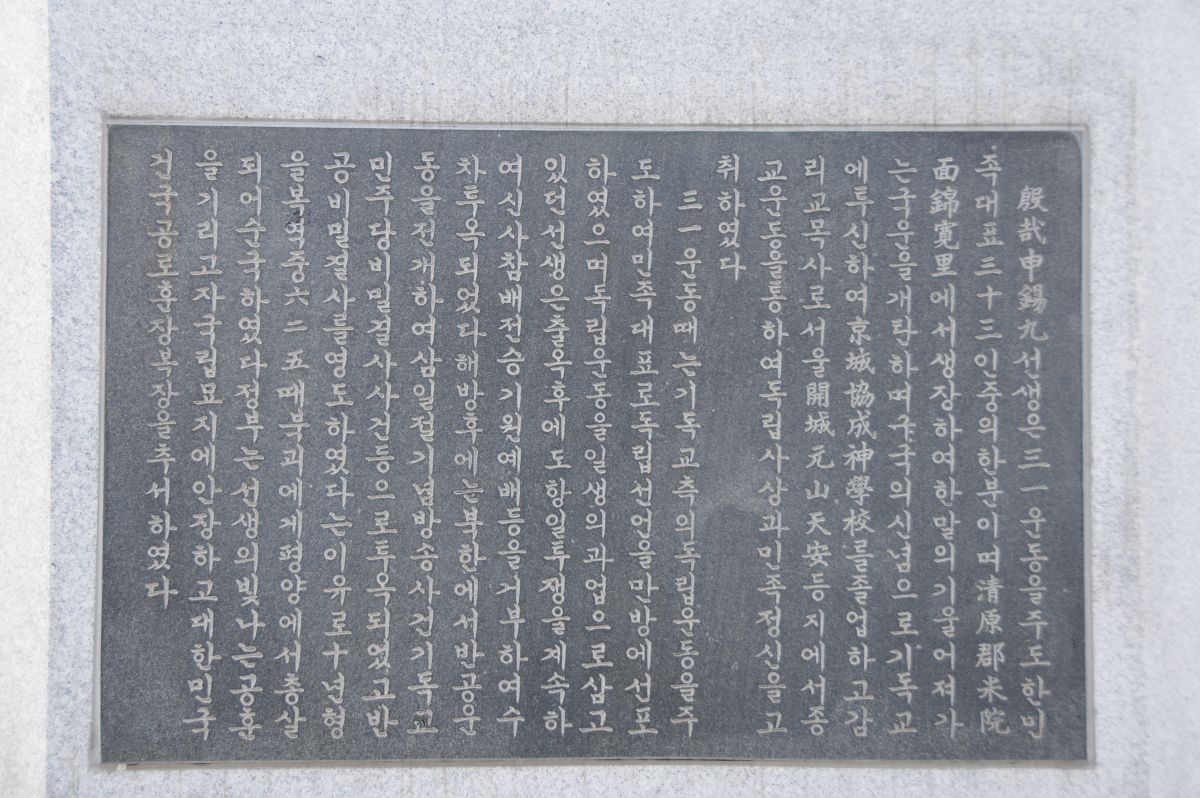 殷哉申錫九선생은三一운동을주도한민
족대표三十三인중의한분이며清原郡米院
面錦寬里에서생장하여한말의기울어져가
는국운을개탄하며구국의신념으로기독교
에투신하여京城協成神學校를졸업하고감
리교목사로서울開城元山天安등지에서종
교운동을통하여독립사상과민족정신을고
취하였다
三一운동때는기독교측의독립운동을주
도하여민족대표로독립선언을만방에선포
하였으며독립운동을일생의과업으로삼고
있던선생은출옥후에도항일투쟁을계속하
여신사참배전승기원예배등을거부하여수
차투옥되었다해방후에는북한에서반공운
동을전개하여삼일절기념방송사건기독교
민주당비밀결사사건등으로투옥되였고반
공비밀결사를영도하였다는이유로十년형
을복역중六二五때북괴에게평양에서총살
되어순국하였다정부는선생의빛나는공훈
을기리고자국립묘지에안장하고대한민국
건국공로훈장복장을추서하였다